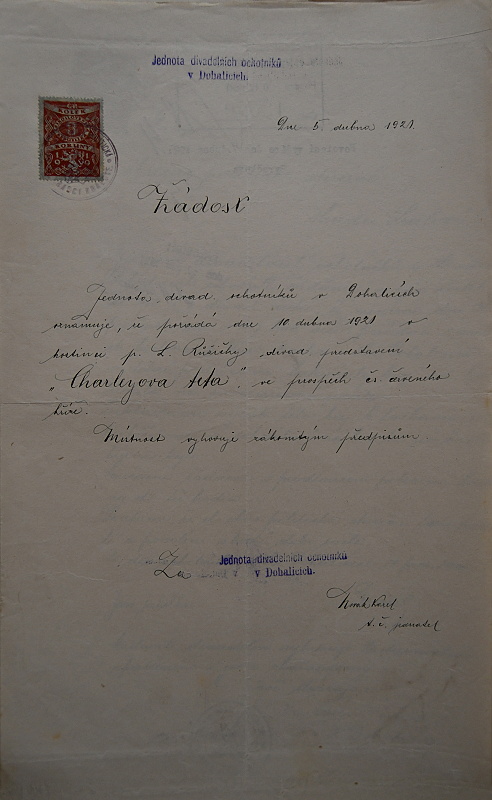 Jednota divadelních ochotníků
v Dohalicích.
KOLEK
5
KORUN
Dne 5. dubna 1921.
Žádost
Jednota divad. ochotníků v Dohalicích
oznamuje, že pořádá dne 10 dubna 1921 v
hostinci p. L. Růžičky divad. představení
„Charleyova teta“ ve prospěch čs. červeného
kříže.
Místnost vyhovuje zákonitým předpisům.
Za Jednota divadelních ochotníků
v Dohalicích.
Novák Karel
t. č. jednatel